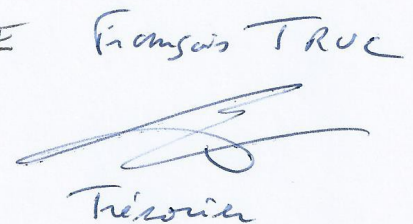 François TRUC
Trésorier